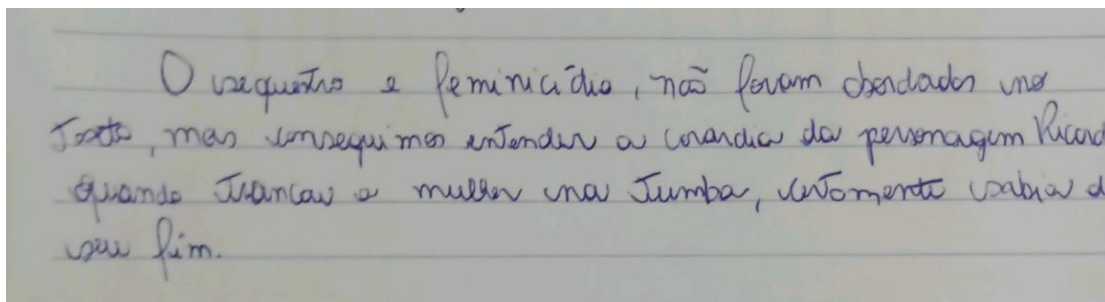 O sequestro e feminicídio, não foram abordados no
texto, mas conseguimos entender a covardia da personagem Ricard
quando trancou a mulher na tumba, certamente sabia d
seu fim.